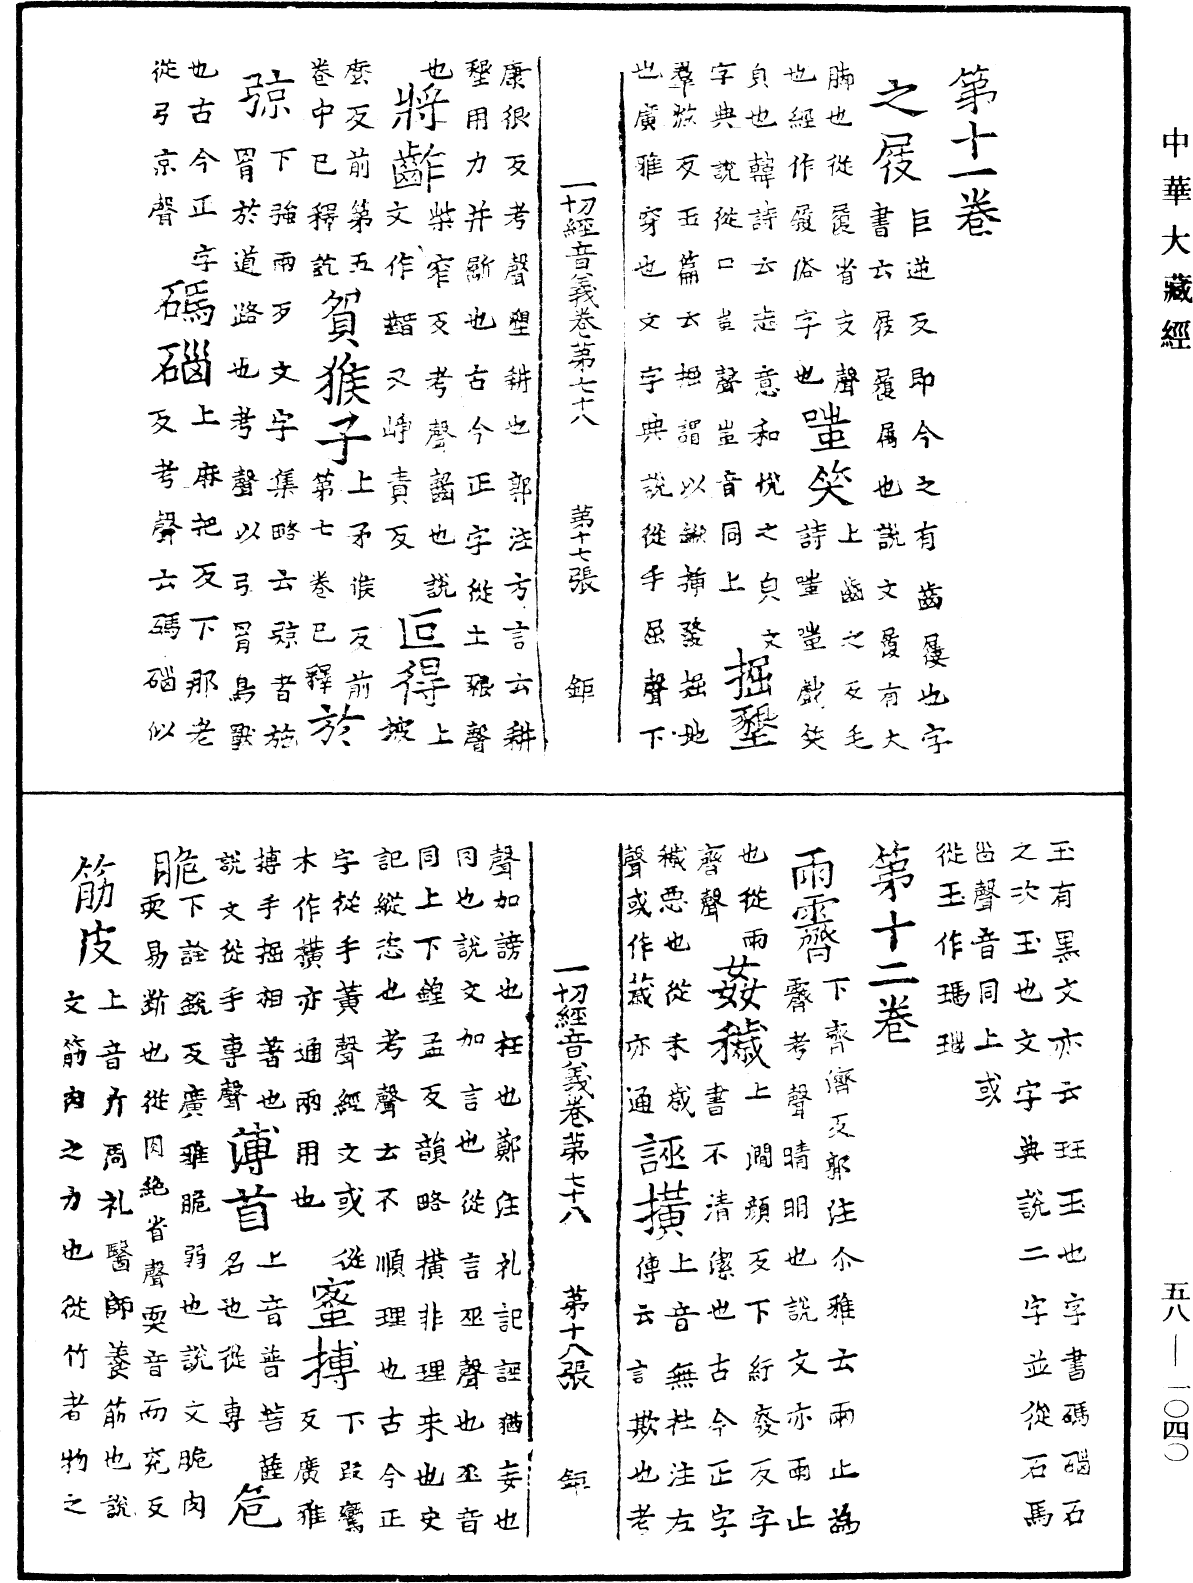 中華大藏經
第十一卷
之屐巨逆反即今之有齒屐也字
書云屐履屬也說文屐有大
腳也從履省支聲
也經作屐俗字也
嗤笑上齒之反毛
詩嗤嗤戲笑
貞也韓詩云志意和悅之貞文
字典說從口蚩聲蚩音同上
掘墾
羣欻反玉篇云掘謂以鍬插發掘地
也廣雅穿也文字典說從手屈聲下
一切經音義卷第七十八 第十七張 鉅
康很反考聲墾耕也郭注方言云耕
墾用力并斸也古今正字從土豤聲
也
將齚柴窄反考聲齧也說
文作齰又崢責反
叵得上坡
麼反前第五
卷中已釋訖
貿猴子上矛候反前
第七卷已釋
於
弶下強兩反文字集略云弶者施
罥於道路也考聲以弓罥鳥獸
也古今正字
從弓京聲
碼碯上麻把反下那老
反考聲云碼碯似
玉有黑文亦云玨玉也字書碼碯石
之次玉也文字典說二字並從石馬
㐫聲音同上或
從玉作瑪瑙
第十二卷
雨霽下齊濟反郭注尒雅云雨止為
霽考聲晴明也說文亦雨止
也從雨
齊聲
姦穢上澗顏反下紆廢反字
書不清潔也古今正字
穢惡也從禾歲
聲或作薉亦通
誣撗上音無杜注左
傳云言欺也考
一切經音義卷第七十八 第十八張 鉅
聲加謗也枉也鄭注礼記誣猶妄也
同也說文加言也從言巫聲也巫音
同上下鍠孟反韻略撗非理来也史
記縱恣也考聲云不順理也古今正
字從手黃聲經文或從
木作橫亦通兩用也
蜜搏下段鸞
反廣雅
搏手掘相著也
說文從手專聲
簿首上音普菩薩
名也從專
危
脆下詮銳反廣雅脆弱也說文脆肉
耎易斷也從肉絶省聲耎音而兖反
筋皮上音斤周礼醫師養筋也說
文筋肉之力也從竹者物之
五八—一〇四〇